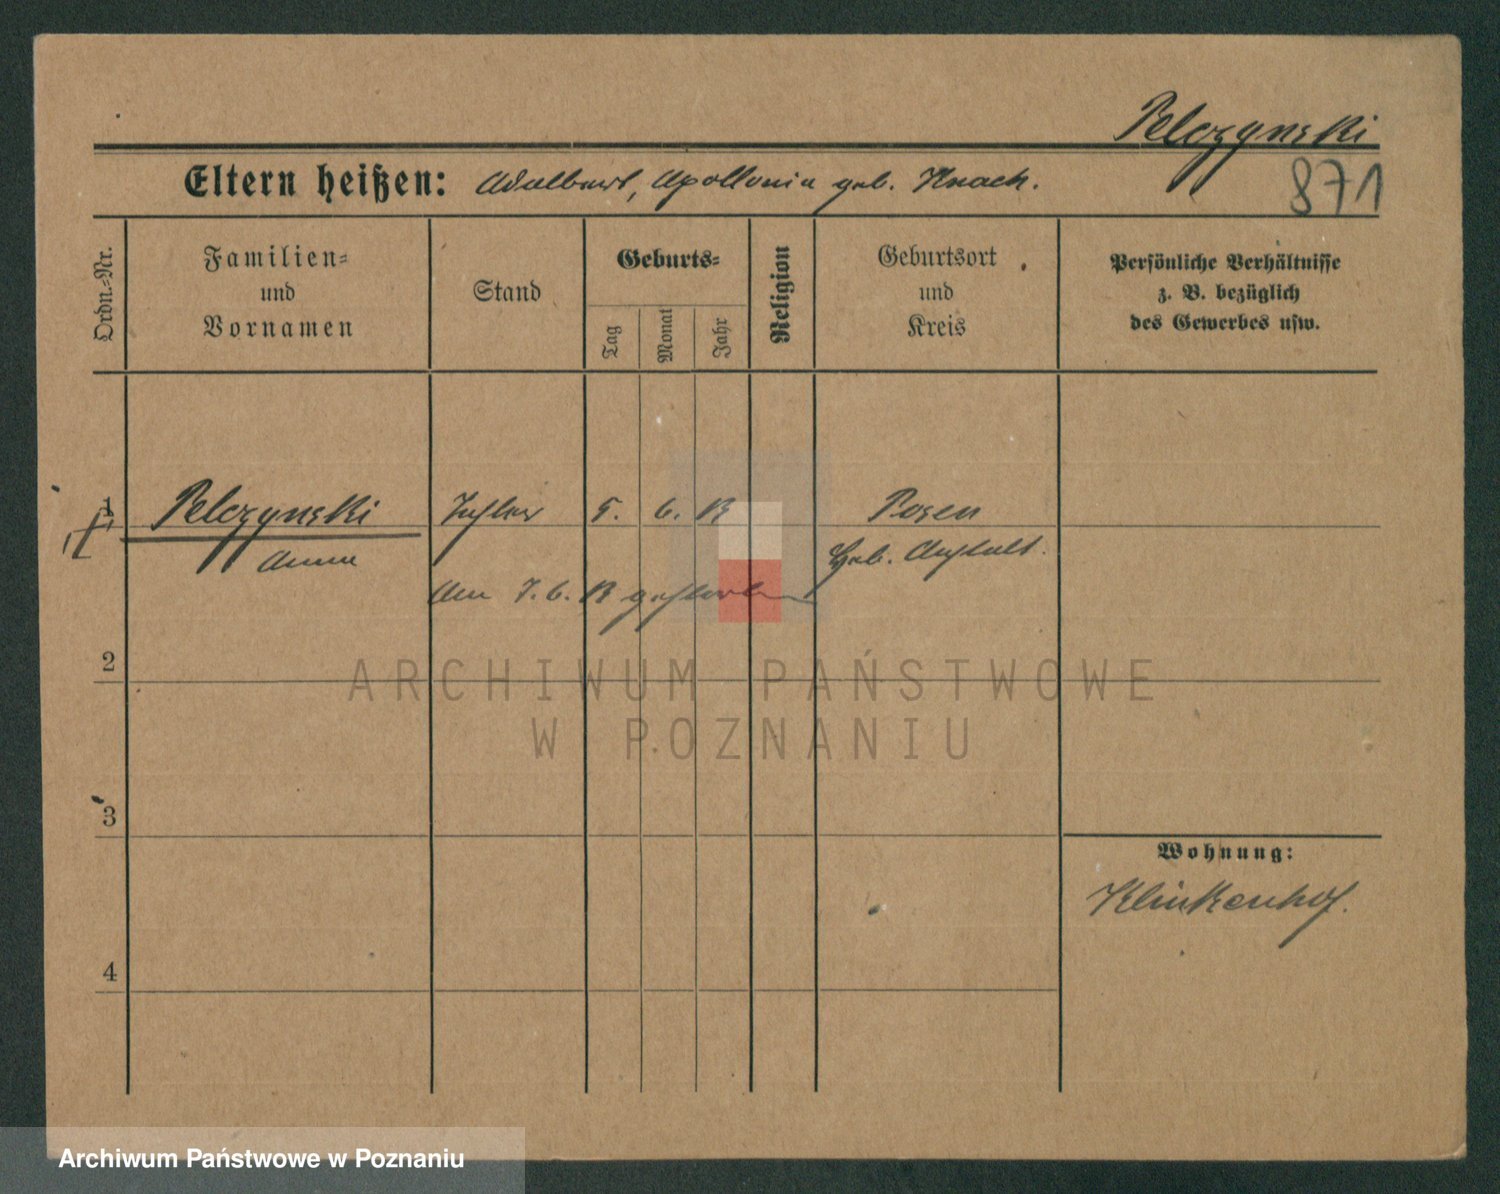 Pelczynski
871
Eltern heißen: Adalbert, Apollonia geb. Knach.
Ordn.-Nr.
Familien-
und
Vornamen
Stand
Geburts-
Tag
Monat
Jahr
Religion
Geburtsort
und
Kreis
Persönliche Verhältnisse
z. B. bezüglich
des Gewerbes usw.
1 Pelczynski Tochter 5. 6. 13 Posen
Anna Geb. Anstalt.
Am 7. 6. 13 gestorben
2
ARCHIWUM PAŃSTWOWE
W POZNANIU
3
Wohnung:
Klinkenhof.
4
Archiwum Państwowe w Poznaniu